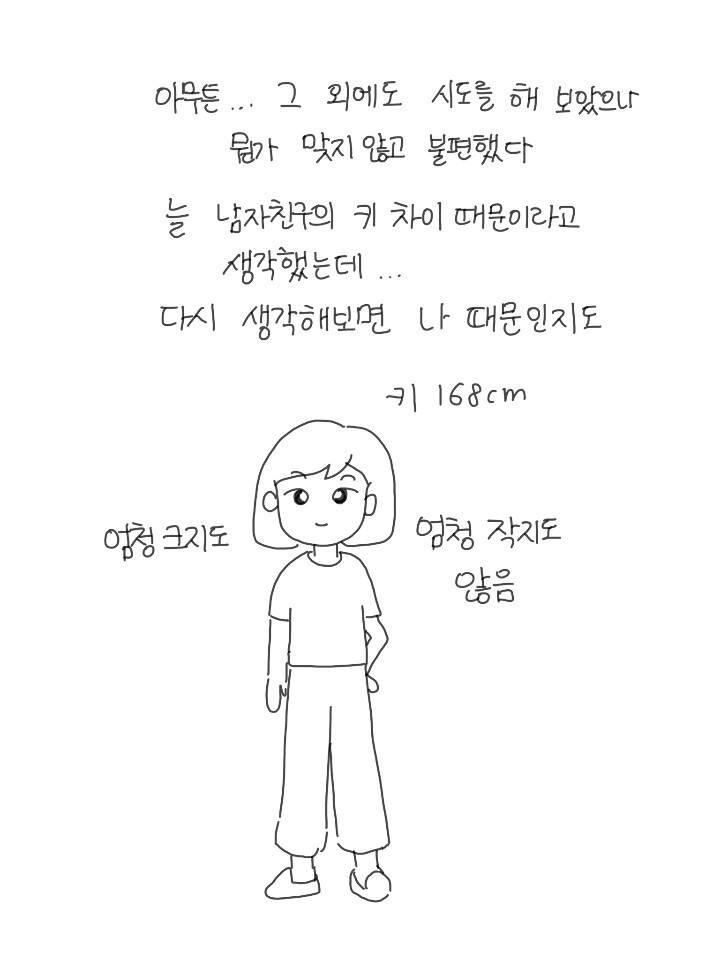 아무튼... 그 외에도 시도를 해 보았으나
뭔가 맞지 않고 불편했다
늘 남자친구의 키 차이 때문이라고
생각했는데...
다시 생각해보면 나 때문인지도
키 168cm
엄청 크지도
엄청 작지도
않음